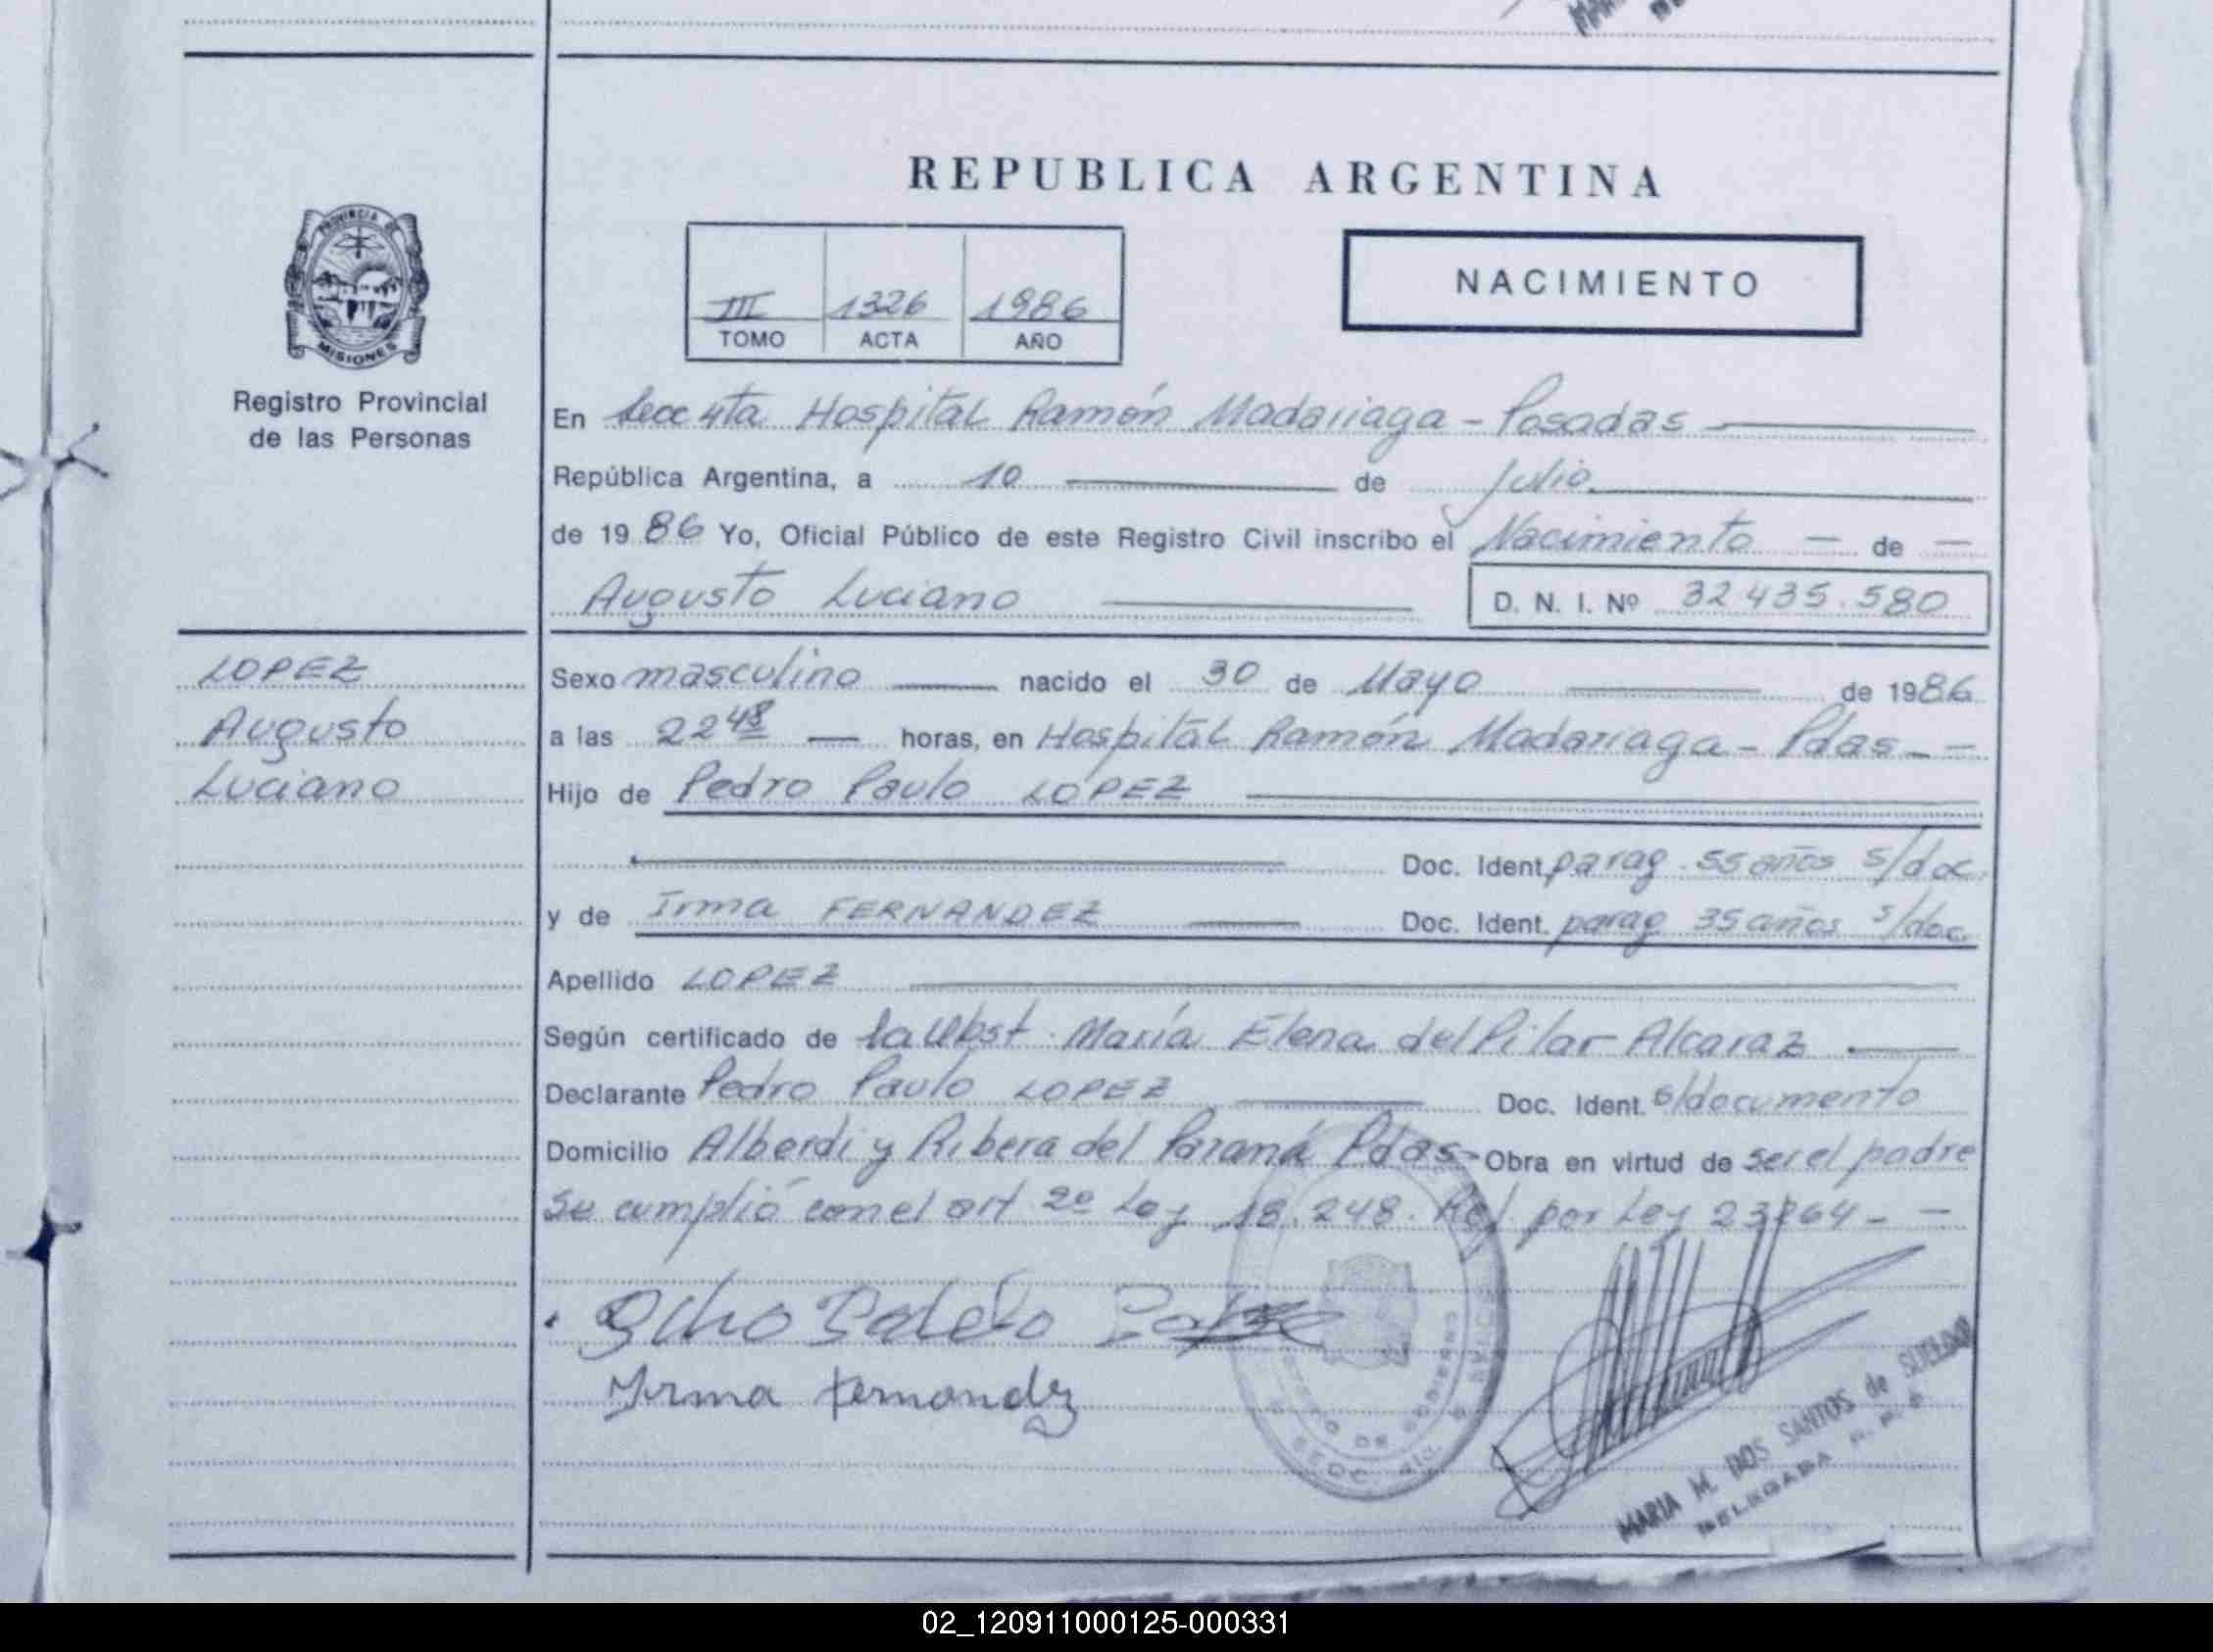 REPUBLICA ARGENTINA
PROVINCIA DE MISIONES
III 1326 1986
TOMO ACTA AÑO
NACIMIENTO
Registro Provincial
de las Personas
En Secc 4ta Hospital Ramón Madariaga - Posadas
República Argentina, a 10 de Julio
de 1986 Yo, Oficial Público de este Registro Civil inscribo el Nacimiento - de -
Augusto Luciano D. N. I. Nº 32 435.580
LOPEZ
Augusto
Luciano
Sexo masculino nacido el 30 de Mayo de 1986
a las 22 48 horas, en Hospital Ramón Madariaga - Pdas - -
Hijo de Pedro Paulo LOPEZ
Doc. Ident. parag. 55 años s/doc.
y de Irma FERNANDEZ Doc. Ident. parag 35 años s/doc
Apellido LOPEZ
Según certificado de la Obst. María Elena del Pilar Alcaraz
Declarante Pedro Paulo LOPEZ Doc. Ident. s/documento
Domicilio Alberdi y Ribera del Paraná Pdas- Obra en virtud de ser el padre
Se cumplió con el art 2º Ley 18.248. Ref. por Ley 23264 - -
Irma Fernandez
MARIA M. DOS SANTOS de
DELEGADA
02_120911000125-000331